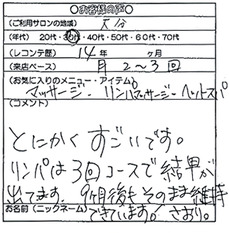 ●お客様の声●
(ご利用サロンの地域) 大分
(年代) 20代・30代・40代・50代・60代・70代
(レコンテ歴) 14年 ヶ月
(来店ペース) 月2〜3回
(お気に入りのメニュー・アイテム)
マッサージ・リンパマッサージ・ヘッドスパ
(コメント)
とにかくすごいです。
リンパは3回コースで結果が
出てます。9ヶ月後もそのまま維持
できています。
お名前(ニックネーム) さおり。